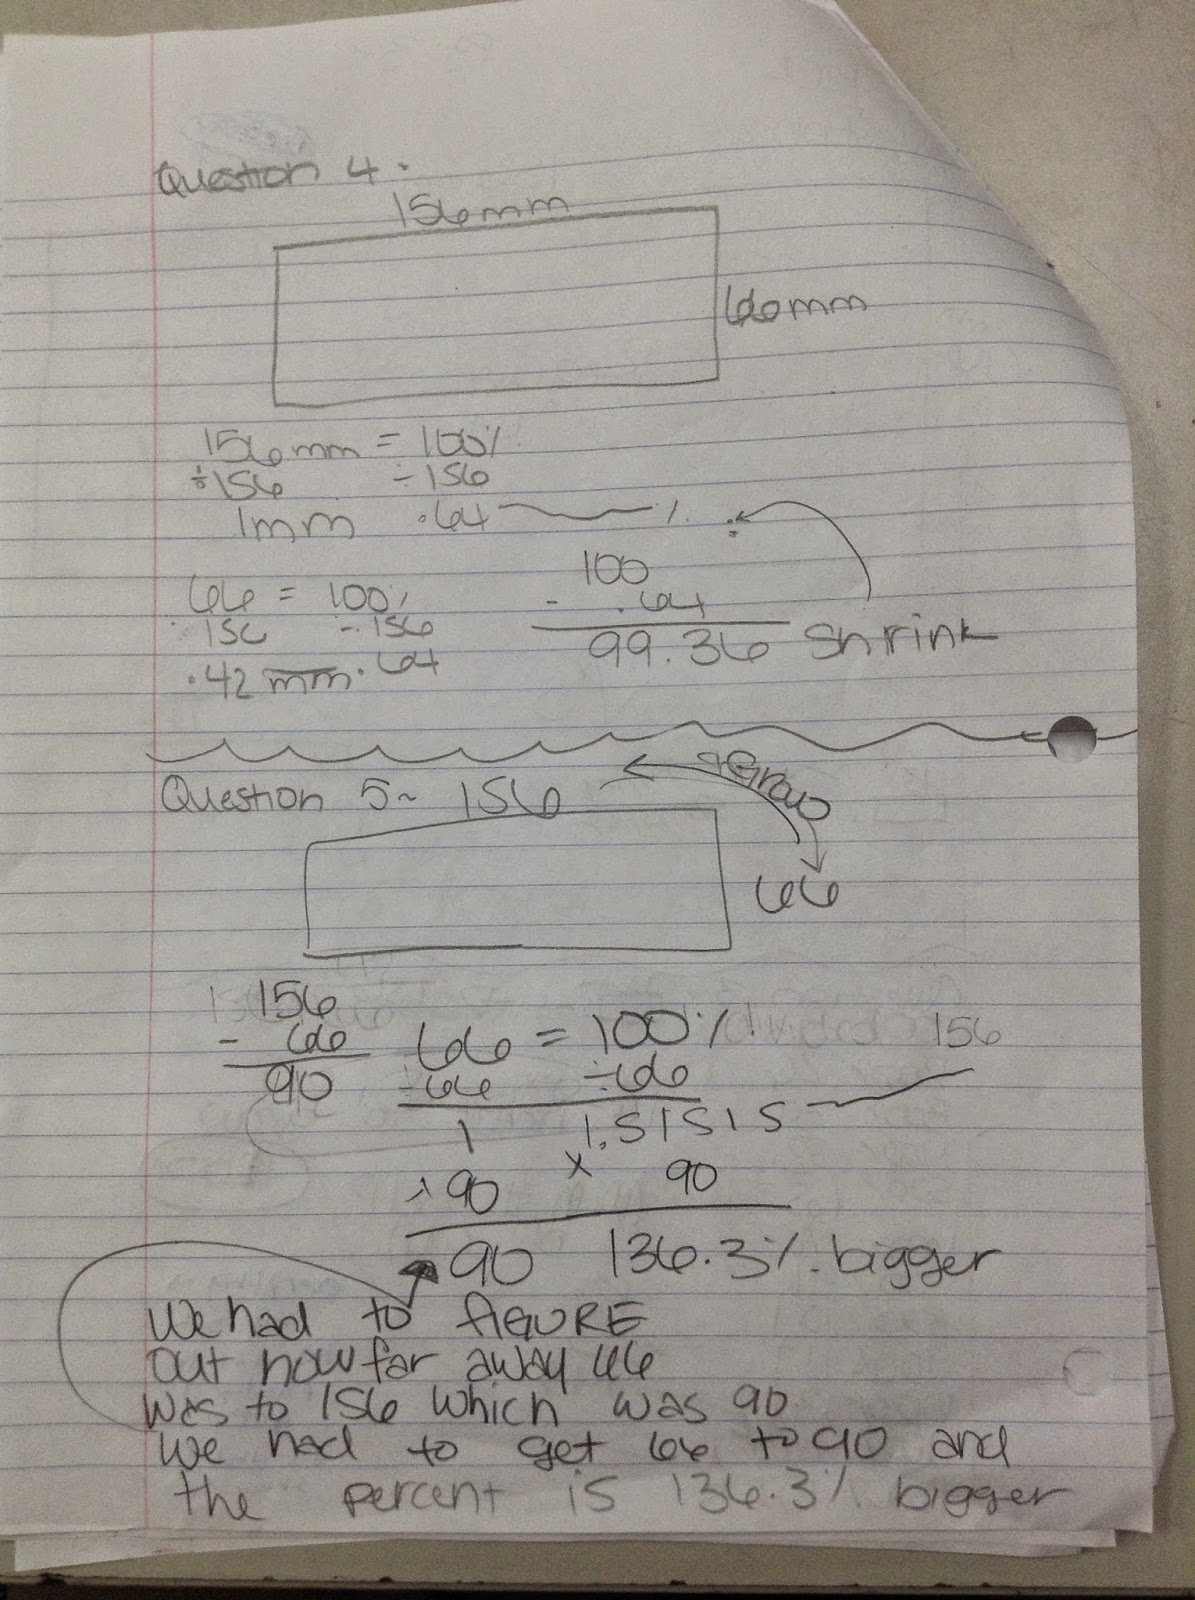 Question 4.
156mm
66mm
156mm = 100%
÷156 ÷156
1mm .64 %
100
- .64
99.36 shrink
66 = 100%
156 ÷156
.42 mm .64
Question 5~ 156
Grow
66
156
- 66
90
66 = 100%
÷66 ÷66
156
1 1.51515
x90 x 90
90 136.3% bigger
We had to figure
out how far away 66
was to 156 which was 90
We had to get 66 to 90 and
the percent is 136.3% bigger